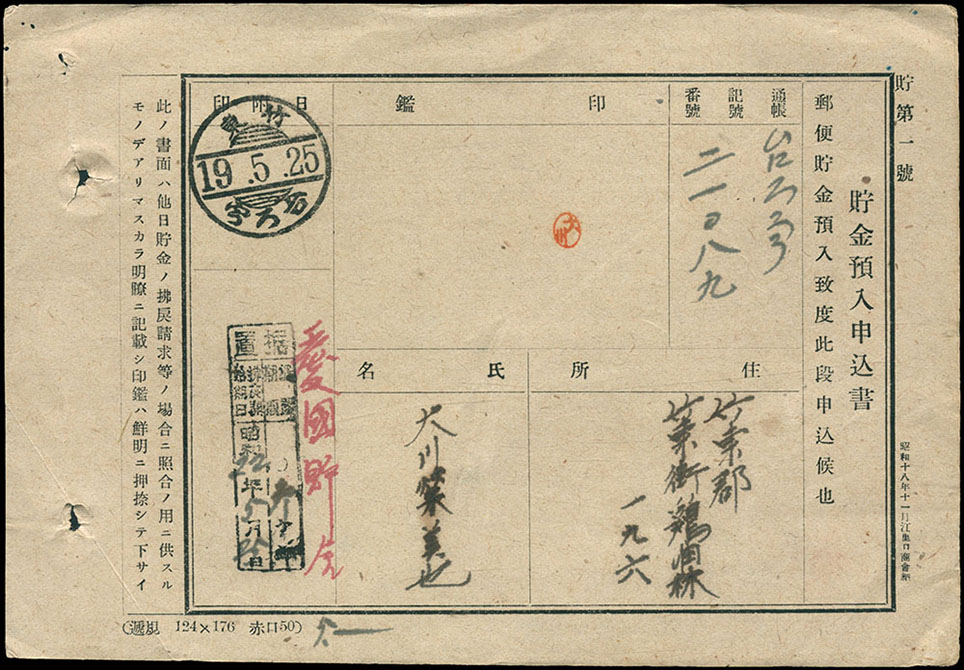 貯第一號
貯金預入申込書
郵便貯金預入致度此段申込候也
昭和十八年十一月江
通帳
記號
番號
台ろ
二一〇八九
印鑑
大川
日附印
竹東
19.5.25
台ろ
住所
竹東郡
竹東街鶏油林
一九六
氏名
大川榮美也
愛國貯金
据置
昭和
年
月
日
此ノ書面ハ他日貯金ノ拂戾請求等ノ場合ニ照合ノ用ニ供スル
モノデアリマスカラ明瞭ニ記載シ印鑑ハ鮮明ニ押捺シテ下サイ
124×176 赤口50)